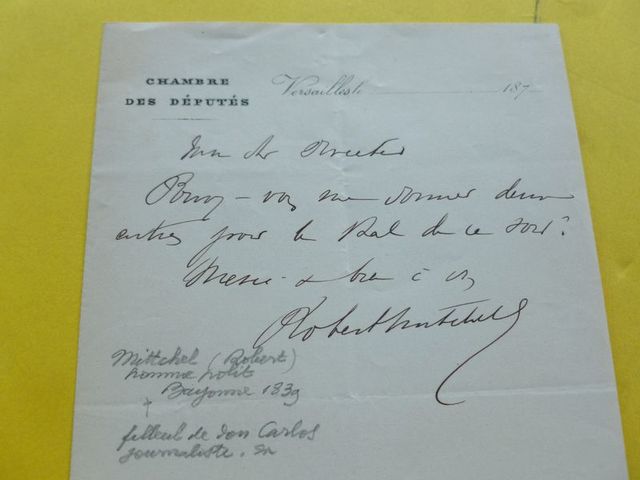 CHAMBRE
DES DÉPUTÉS
Versailles le 187
Mon cher Directeur
Pouvez-vous me donner deux
entrées pour le Bal de ce soir?
Merci & bien à vs
Robert Mitchell
Mittchel (Robert)
homme polit.
Bayonne 1839
†
filleul de Don Carlos
journaliste.